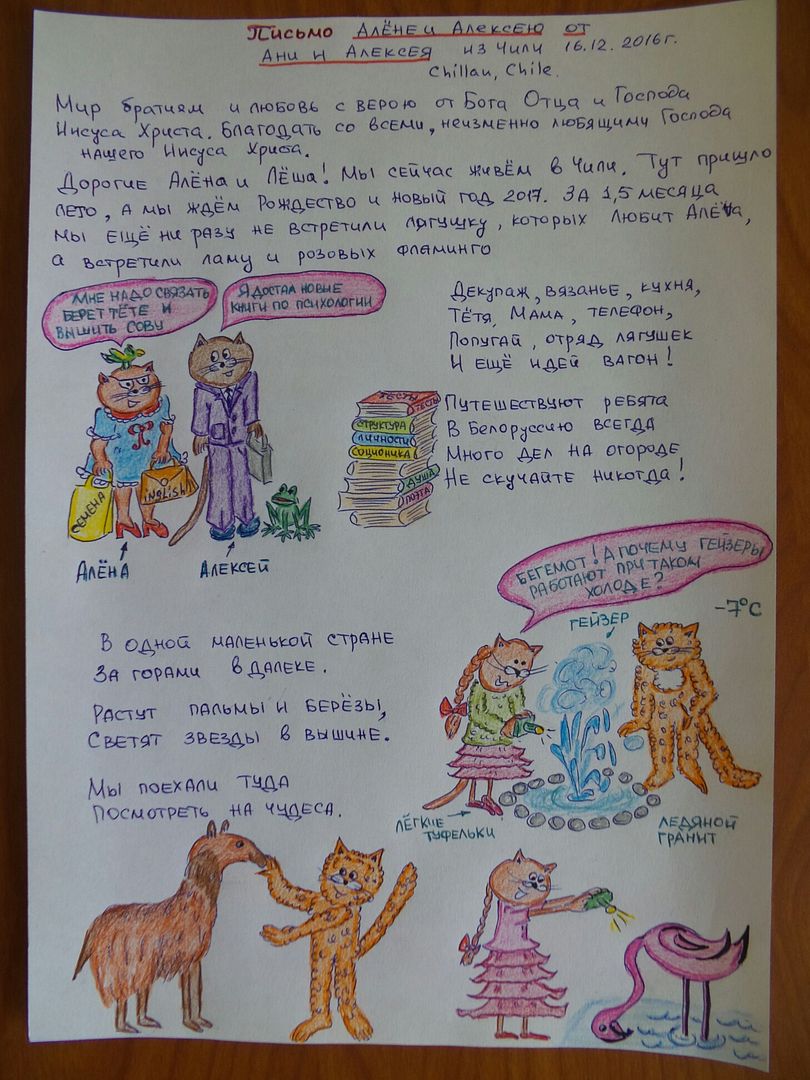 Письмо Алёне и Алексею от
Ани и Алексея из Чили 16.12.2016г.
Chillan, Chile.
Мир братиям и любовь с верою от Бога Отца и Господа
Иисуса Христа. Благодать со всеми, неизменно любящими Господа
нашего Иисуса Христа.
Дорогие Алёна и Лёша! Мы сейчас живём в Чили. Тут пришло
лето, а мы ждём Рождество и новый год 2017. За 1,5 месяца
мы ещё ни разу не встретили лягушку, которых любит Алёна,
а встретили ламу и розовых фламинго
Мне надо связать
берет тёте и
вышить сову
Я достал новые
книги по психологии
Декупаж, вязанье, кухня,
Тётя, Мама, телефон,
Попугай, отряд лягушек
И ещё идей вагон!
Путешествуют ребята
В Белоруссию всегда
Много дел на огороде
Не скучайте никогда!
тесты
тесты
структура
личности
соционика
душа
поэта
семена
inglish
Алёна
Алексей
Бегемот! А почему гейзеры
работают при таком
холоде?
-7°C
гейзер
В одной маленькой стране
За горами в далеке.
Растут пальмы и берёзы,
Светят звезды в вышине.
Мы поехали туда
Посмотреть на чудеса.
лёгкие
туфельки
ледяной
гранит